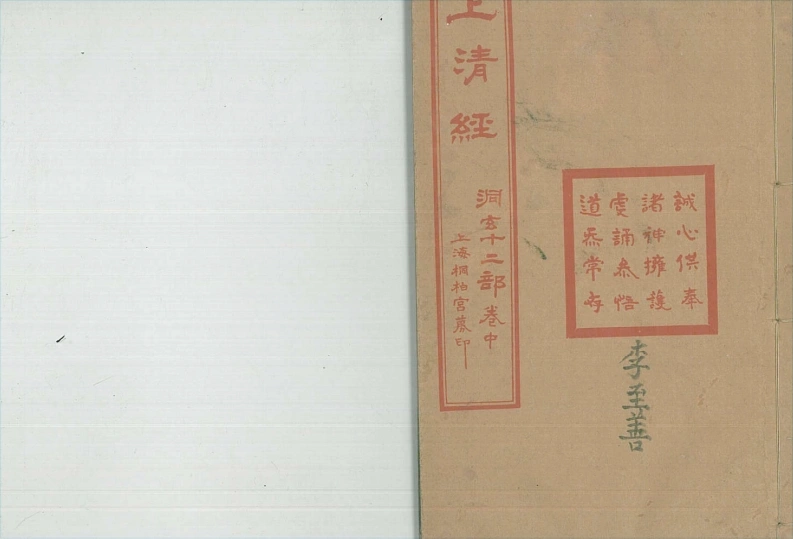 誠心供奉
諸神擁護
虔誦參悟
道炁常存
李至善
上清經
洞玄十二部卷中
上海桐柏宮募印